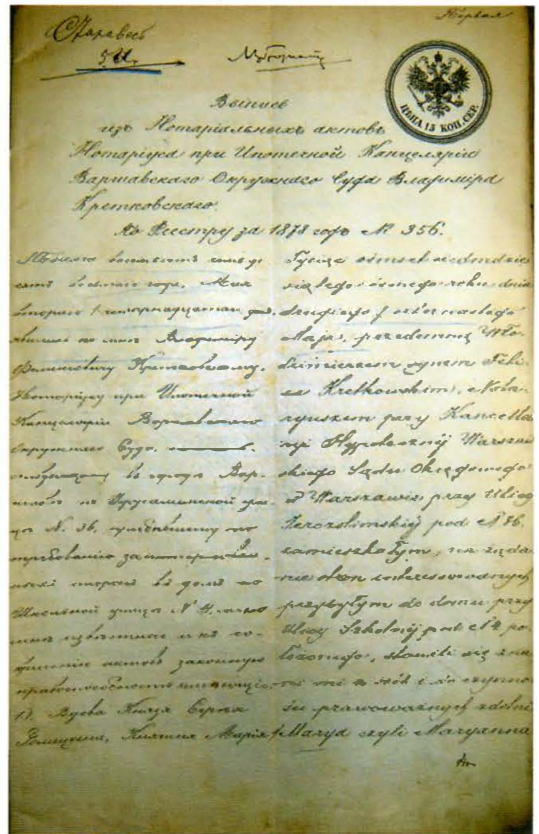 Первая
ЦѢНА 15 КОП. СЕР.
Выпись
изъ Нотаріальныхъ актовъ
Нотаріуса при Ипотечной Канцеляріи
Варшавскаго Окружнаго Суда Владиміра
Кретковскаго.
По Реестру за 1878 годъ № 356.
Тысяча восемьсотъ семьде
сятъ восьмаго года, Мая
втораго / четырнадцатаго дня
явились ко мнѣ Владиміру
Феликсовичу Кретковскому,
Нотаріусу при Ипотечной
Канцеляріи Варшавскаго
Окружнаго Суда,
въ городѣ Вар-
шавѣ по Іерусалимской ули-
цѣ № 36, прибывшему по
требованію
въ домъ по
Школьной улицѣ №
мнѣ извѣстные и къ со-
вершенію актовъ законную
правоспособность имѣющіе,
1) Вдова Князя Сергѣя
Голицына, Княгиня Марія
Tysiąc ośmset siedmdzie
siątego ósmego roku dnia
drugiego / czternastego
Maja, przedemną Wło
dzimierzem synem Feli
xa Kretkowskim, Nota
ryuszem przy Kancella
ryi Hypotecznéj Warszaw
skiego Sądu Okręgowego
w Warszawie przy Ulicy
Jerozolimskiéj pod № 36.
zamieszkałym, na żąda
nie osób interesowanych
przybyłym do domu przy
Ulicy Szkolnéj pod № po
łożonego, stawili się zna
ni mi z osób i do czynno
ści prawoważnych zdolni
Marya czyli Maryanna